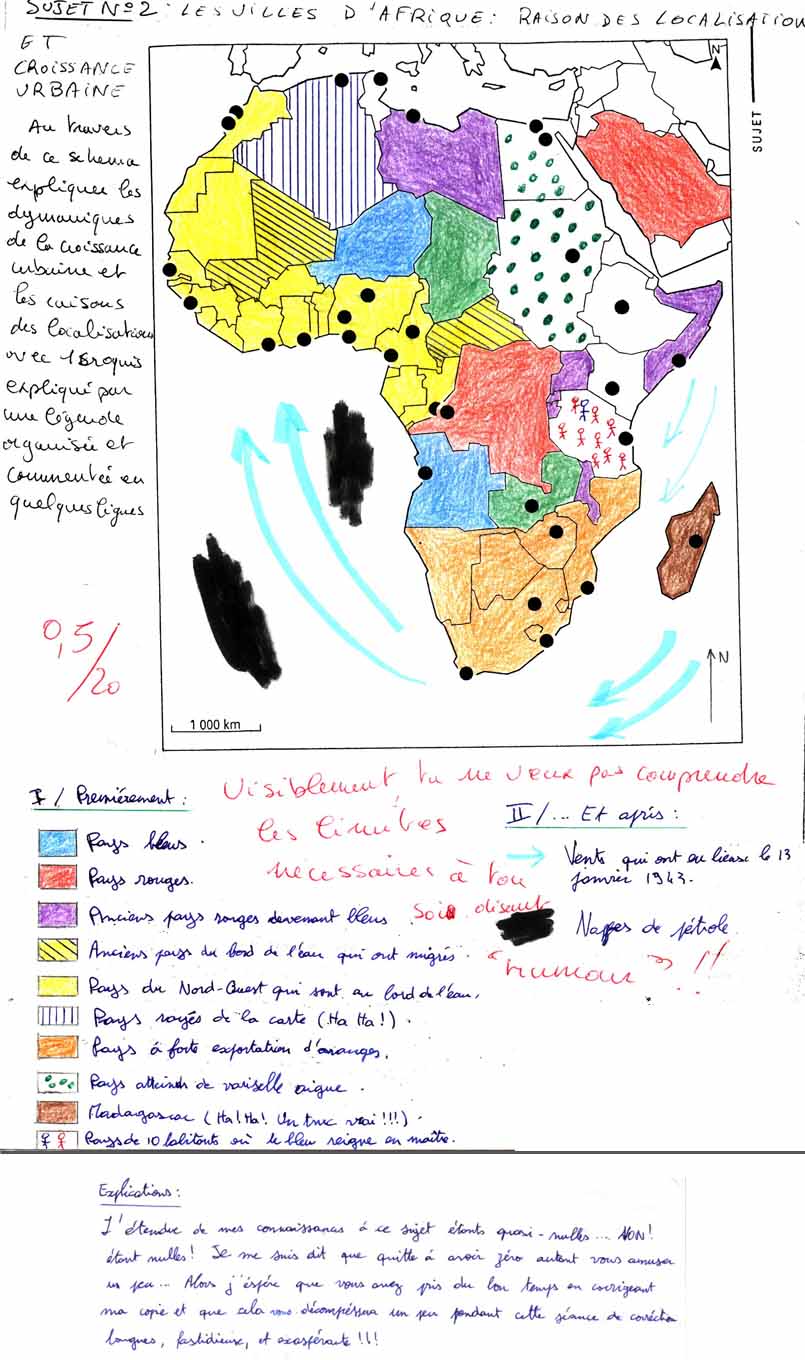 SUJET N°2 : LES VILLES D'AFRIQUE : RAISON DES LOCALISATION
ET
CROISSANCE
URBAINE
Au travers
de ce schema
expliquer les
dynamiques
de la croissance
urbaine et
les raisons
des localisations
avec 1 croquis
expliqué par
une légende
organisée et
commentée en
quelques lignes
N
SUJET
0,5/20
N
1 000 km
Visiblement, tu ne veux pas comprendre
les limites
nécessaires à ton
soi disant
"humour" !!
I / Premièrement :
Pays bleus.
Pays rouges.
Anciens pays rouges devenant bleus
Anciens pays du bord de l'eau qui ont migrés.
Pays du Nord-Ouest qui sont au bord de l'eau.
Pays rayés de la carte (Ha Ha !).
Pays à forte exportation d'oranges.
Pays atteints de variselle aigue.
Madagascar (Ha ! Ha ! Un truc vrai !!!).
Pays de 10 habitants où le bleu reigne en maître.
II / ... Et après :
Vents qui ont eu lieu le 13
janvier 1943.
Nappes de pétrole.
Explications :
L'étendue de mes connaissances à ce sujet étants quasi-nulles ... NON !
étant nulles ! Je me suis dit que quitte à avoir zéro autant vous amuser
un peu ... Alors j'éspére que vous avez pris du bon temps en corrigeant
ma copie et que cela vous décompréssera un peu pendant cette séance de corréction
longues, fastidieuse, et exaspérante !!!